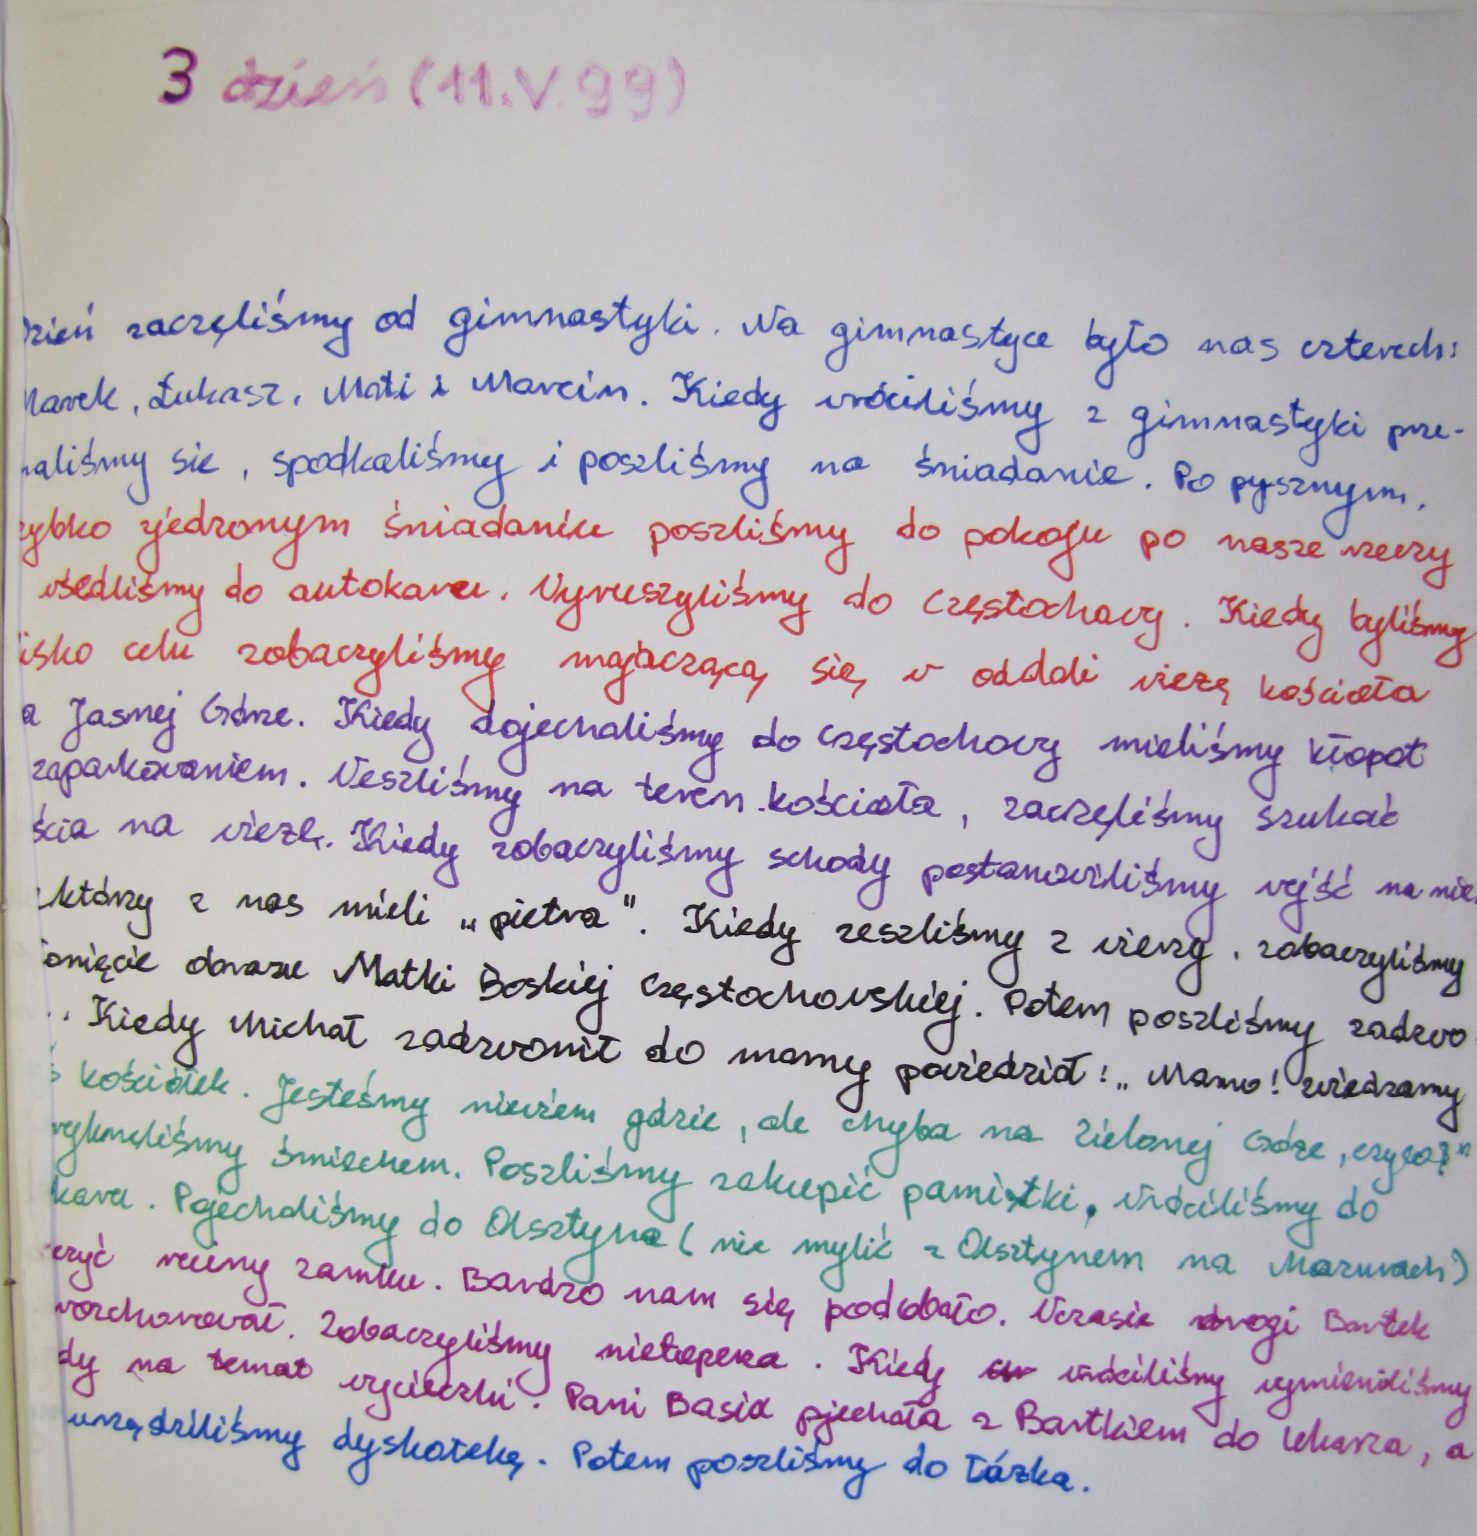 3 dzień (11.V.99)
dzień zaczęliśmy od gimnastyki. Na gimnastyce było nas czterech:
Marek, Łukasz, Mati i Marcin. Kiedy wróciliśmy z gimnastyki prze-
naliśmy sie, spodkaliśmy i poszliśmy na śniadanie. Po pysznym,
zybko zjedzonym śniadaniu poszliśmy do pokoju po nasze rzeczy
wsedliśmy do autokaru. Wyruszyliśmy do Częstochowy. Kiedy byliśmy
isko celu zobaczyliśmy majaczącą się w oddali wieżę kościoła
a Jasnej Górze. Kiedy dojechaliśmy do Częstochowy mieliśmy kłopot
zaparkowaniem. Weszliśmy na teren kościoła, zaczęliśmy szukać
ścia na wieżę. Kiedy zobaczyliśmy schody postanowiliśmy wejść na nie.
którzy z nas mieli „pietra". Kiedy zeszliśmy z wieży, zobaczyliśmy
onięcie obrazu Matki Boskiej Częstochowskiej. Potem poszliśmy zadzwo
.. Kiedy Michał zadzwonił do mamy powiedział: „Mamo! zwiedzamy
ś kościółek. Jesteśmy niewiem gdzie, ale chyba na Zielonej Górze, czy co?"
ryknęliśmy śmiechem. Poszliśmy zakupić pamiątki, wróciliśmy do
karu. Pojechaliśmy do Olsztyna (nie mylić z Olsztynem na Mazurach)
czyć ruiny zamku. Bardzo nam się podobało. Wczasie drogi Bartek
rozchorował. Zobaczyliśmy nietoperza. Kiedy wróciliśmy wymieniliśmy
dy na temat wycieczki. Pani Basia pjechała z Bartkiem do lekarza, a
urządziliśmy dyskotekę. Potem poszliśmy do łózka.